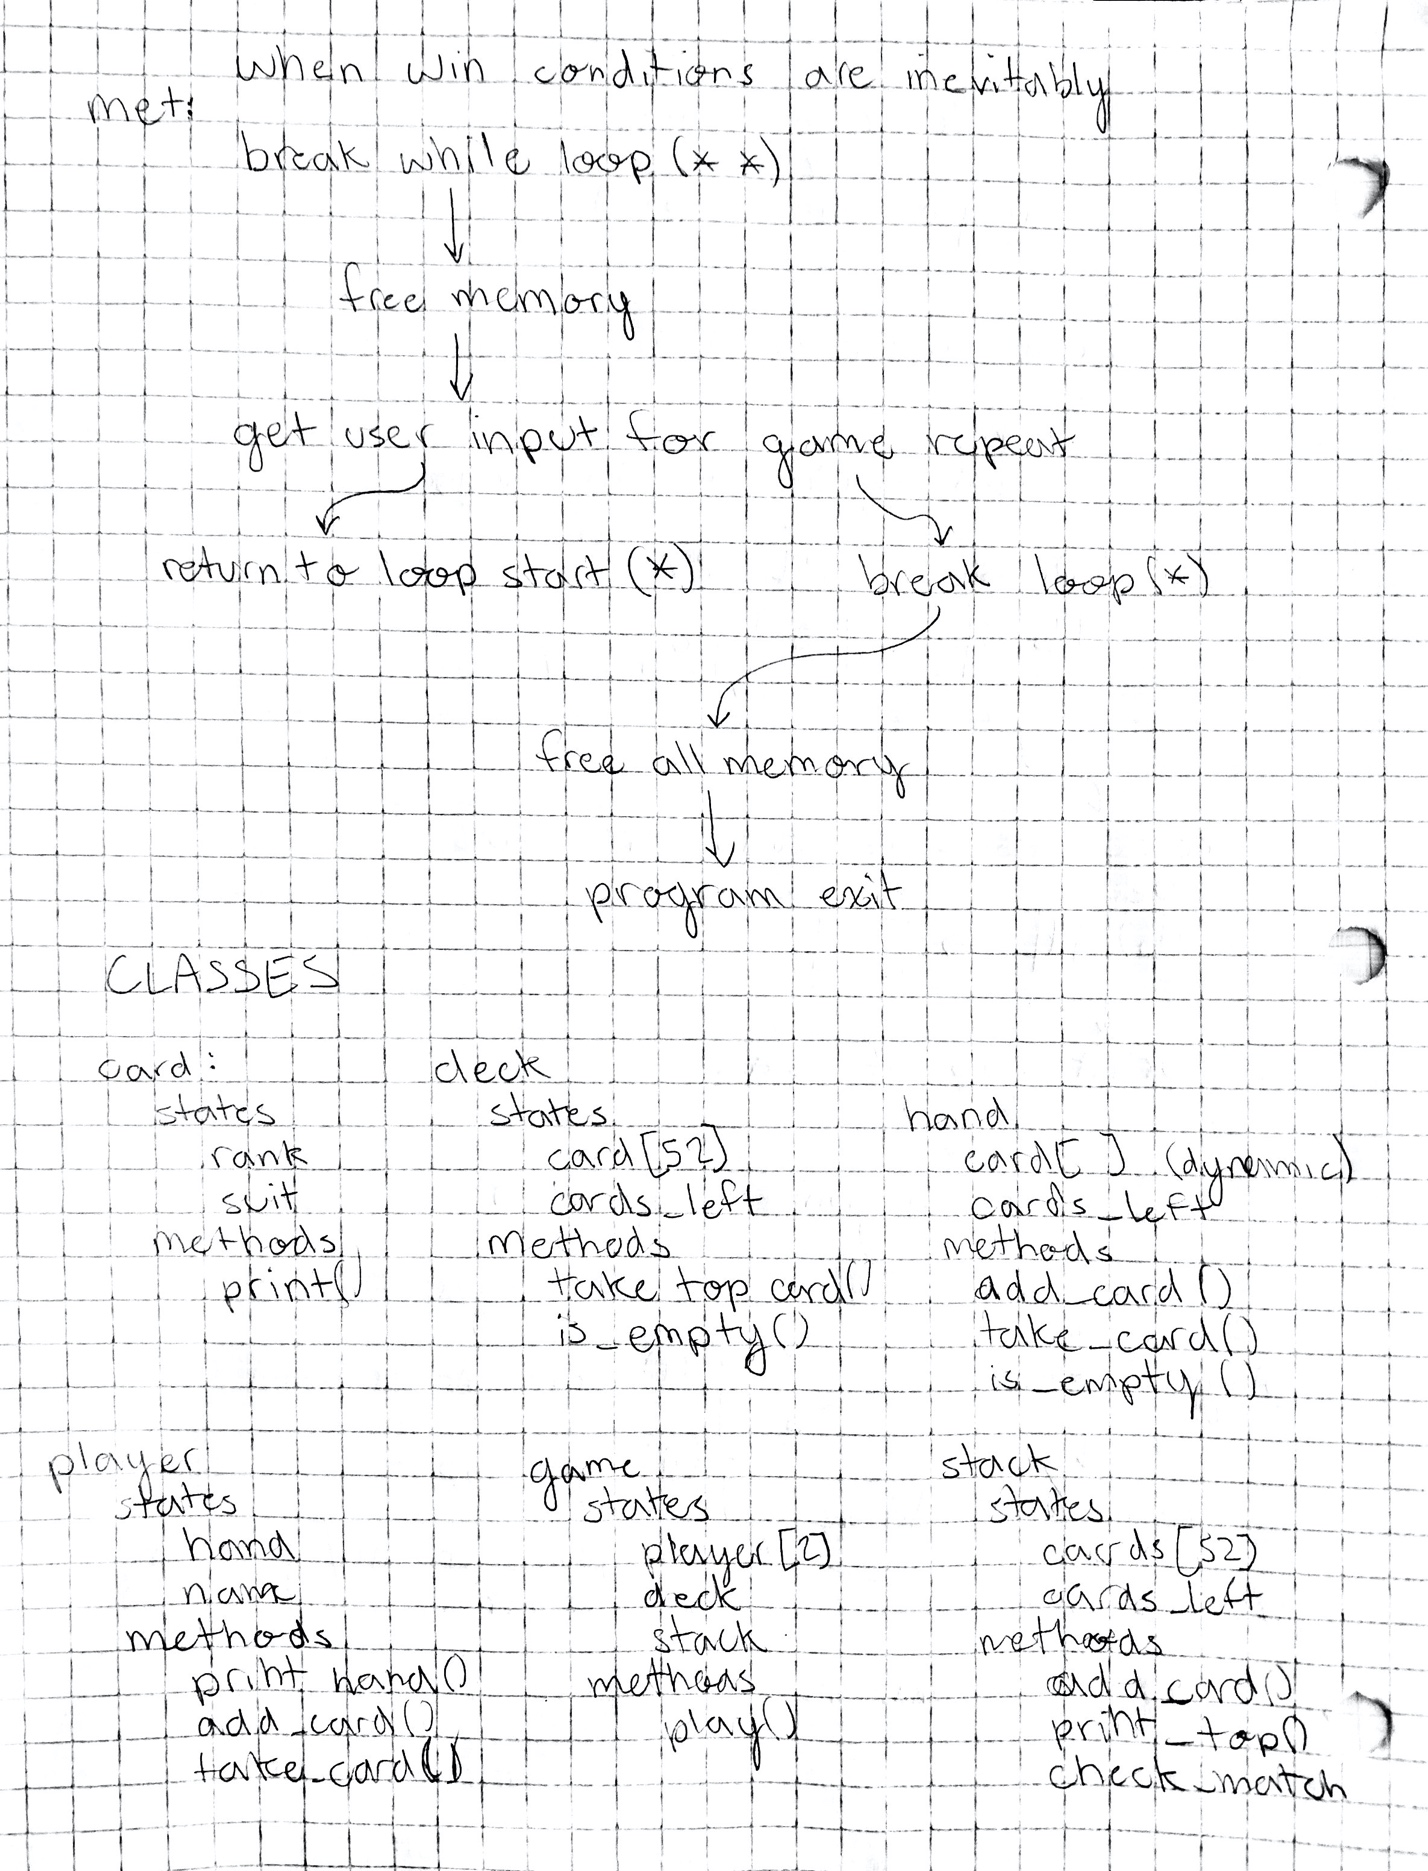 when win conditions are inevitably
met:
break while loop (* *)
free memory
get user input for game repeat
return to loop start (*)
break loop (*)
free all memory
program exit
CLASSES
card:
states
rank
suit
methods
print()
deck
states
card [52]
cards_left
methods
take top card()
is_empty()
hand
card[ ] (dynamic)
cards_left
methods
add_card()
take_card()
is_empty()
player
states
hand
name
methods
print hand()
add_card()
take_card()
game
states
player [2]
deck
stack
methods
play()
stack
states
cards [52]
cards_left
methods
add_card()
print_top()
check_match